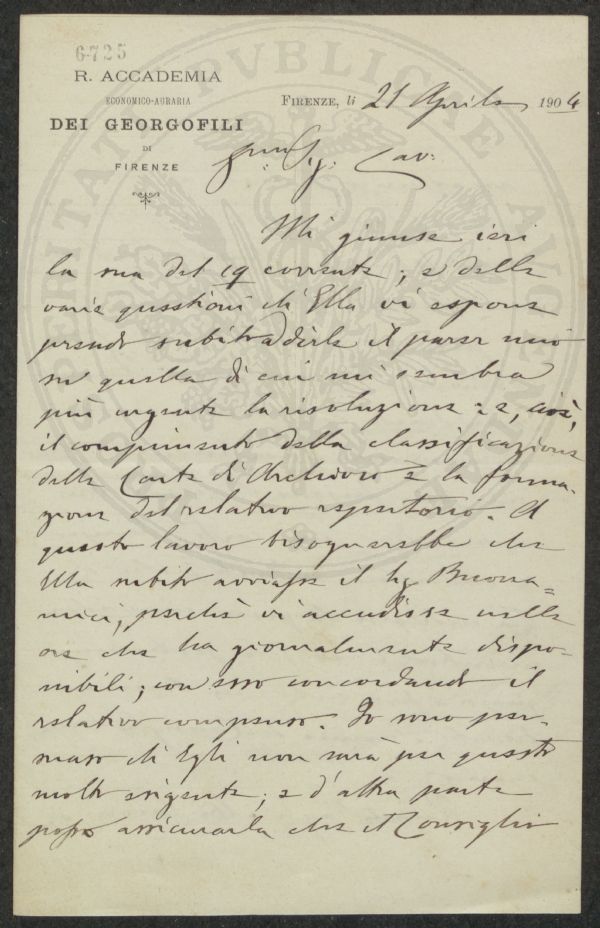 6-725
R. ACCADEMIA
ECONOMICO-AGRARIA
DEI GEORGOFILI
DI
FIRENZE
FIRENZE, li 21 Aprile 1904
Sig. Cav.
Mi giunse ieri
la sua del 19 corrente; e delle
varie questioni ch'Ella vi espone
prendo subito a dirle il parer mio
su quella di cui mi sembra
più urgente la risoluzione: e, cioè,
il compimento della classificazione
delle Carte di Archivio e la forma-
zione del relativo repertorio. A
questo lavoro bisognerebbe che
Ella subito avviasse il Sig Buona=
mici, perchè vi accudisse nelle
ore che ha giornalmente dispo-
nibili; con esso concordando il
relativo compenso. Io sono per-
suaso ch'Egli non sarà per questo
molto esigente; e d'altra parte
posso assicurarla che il Consiglio